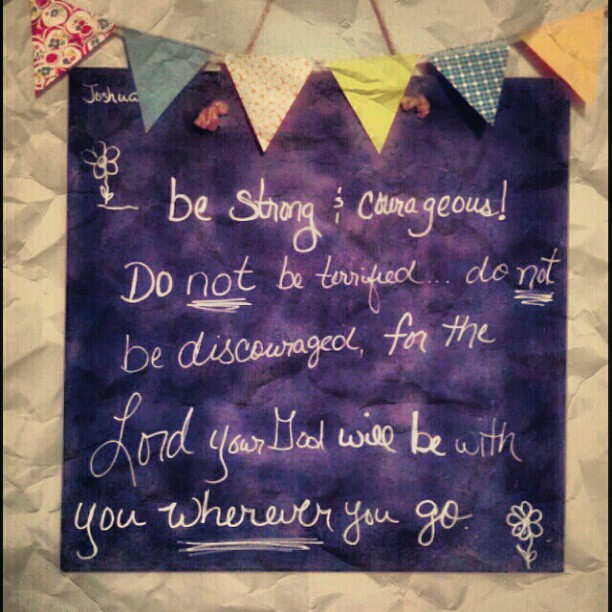 Joshua
be strong & courageous!
Do not be terrified... do not
be discouraged, for the
Lord your God will be with
you wherever you go.